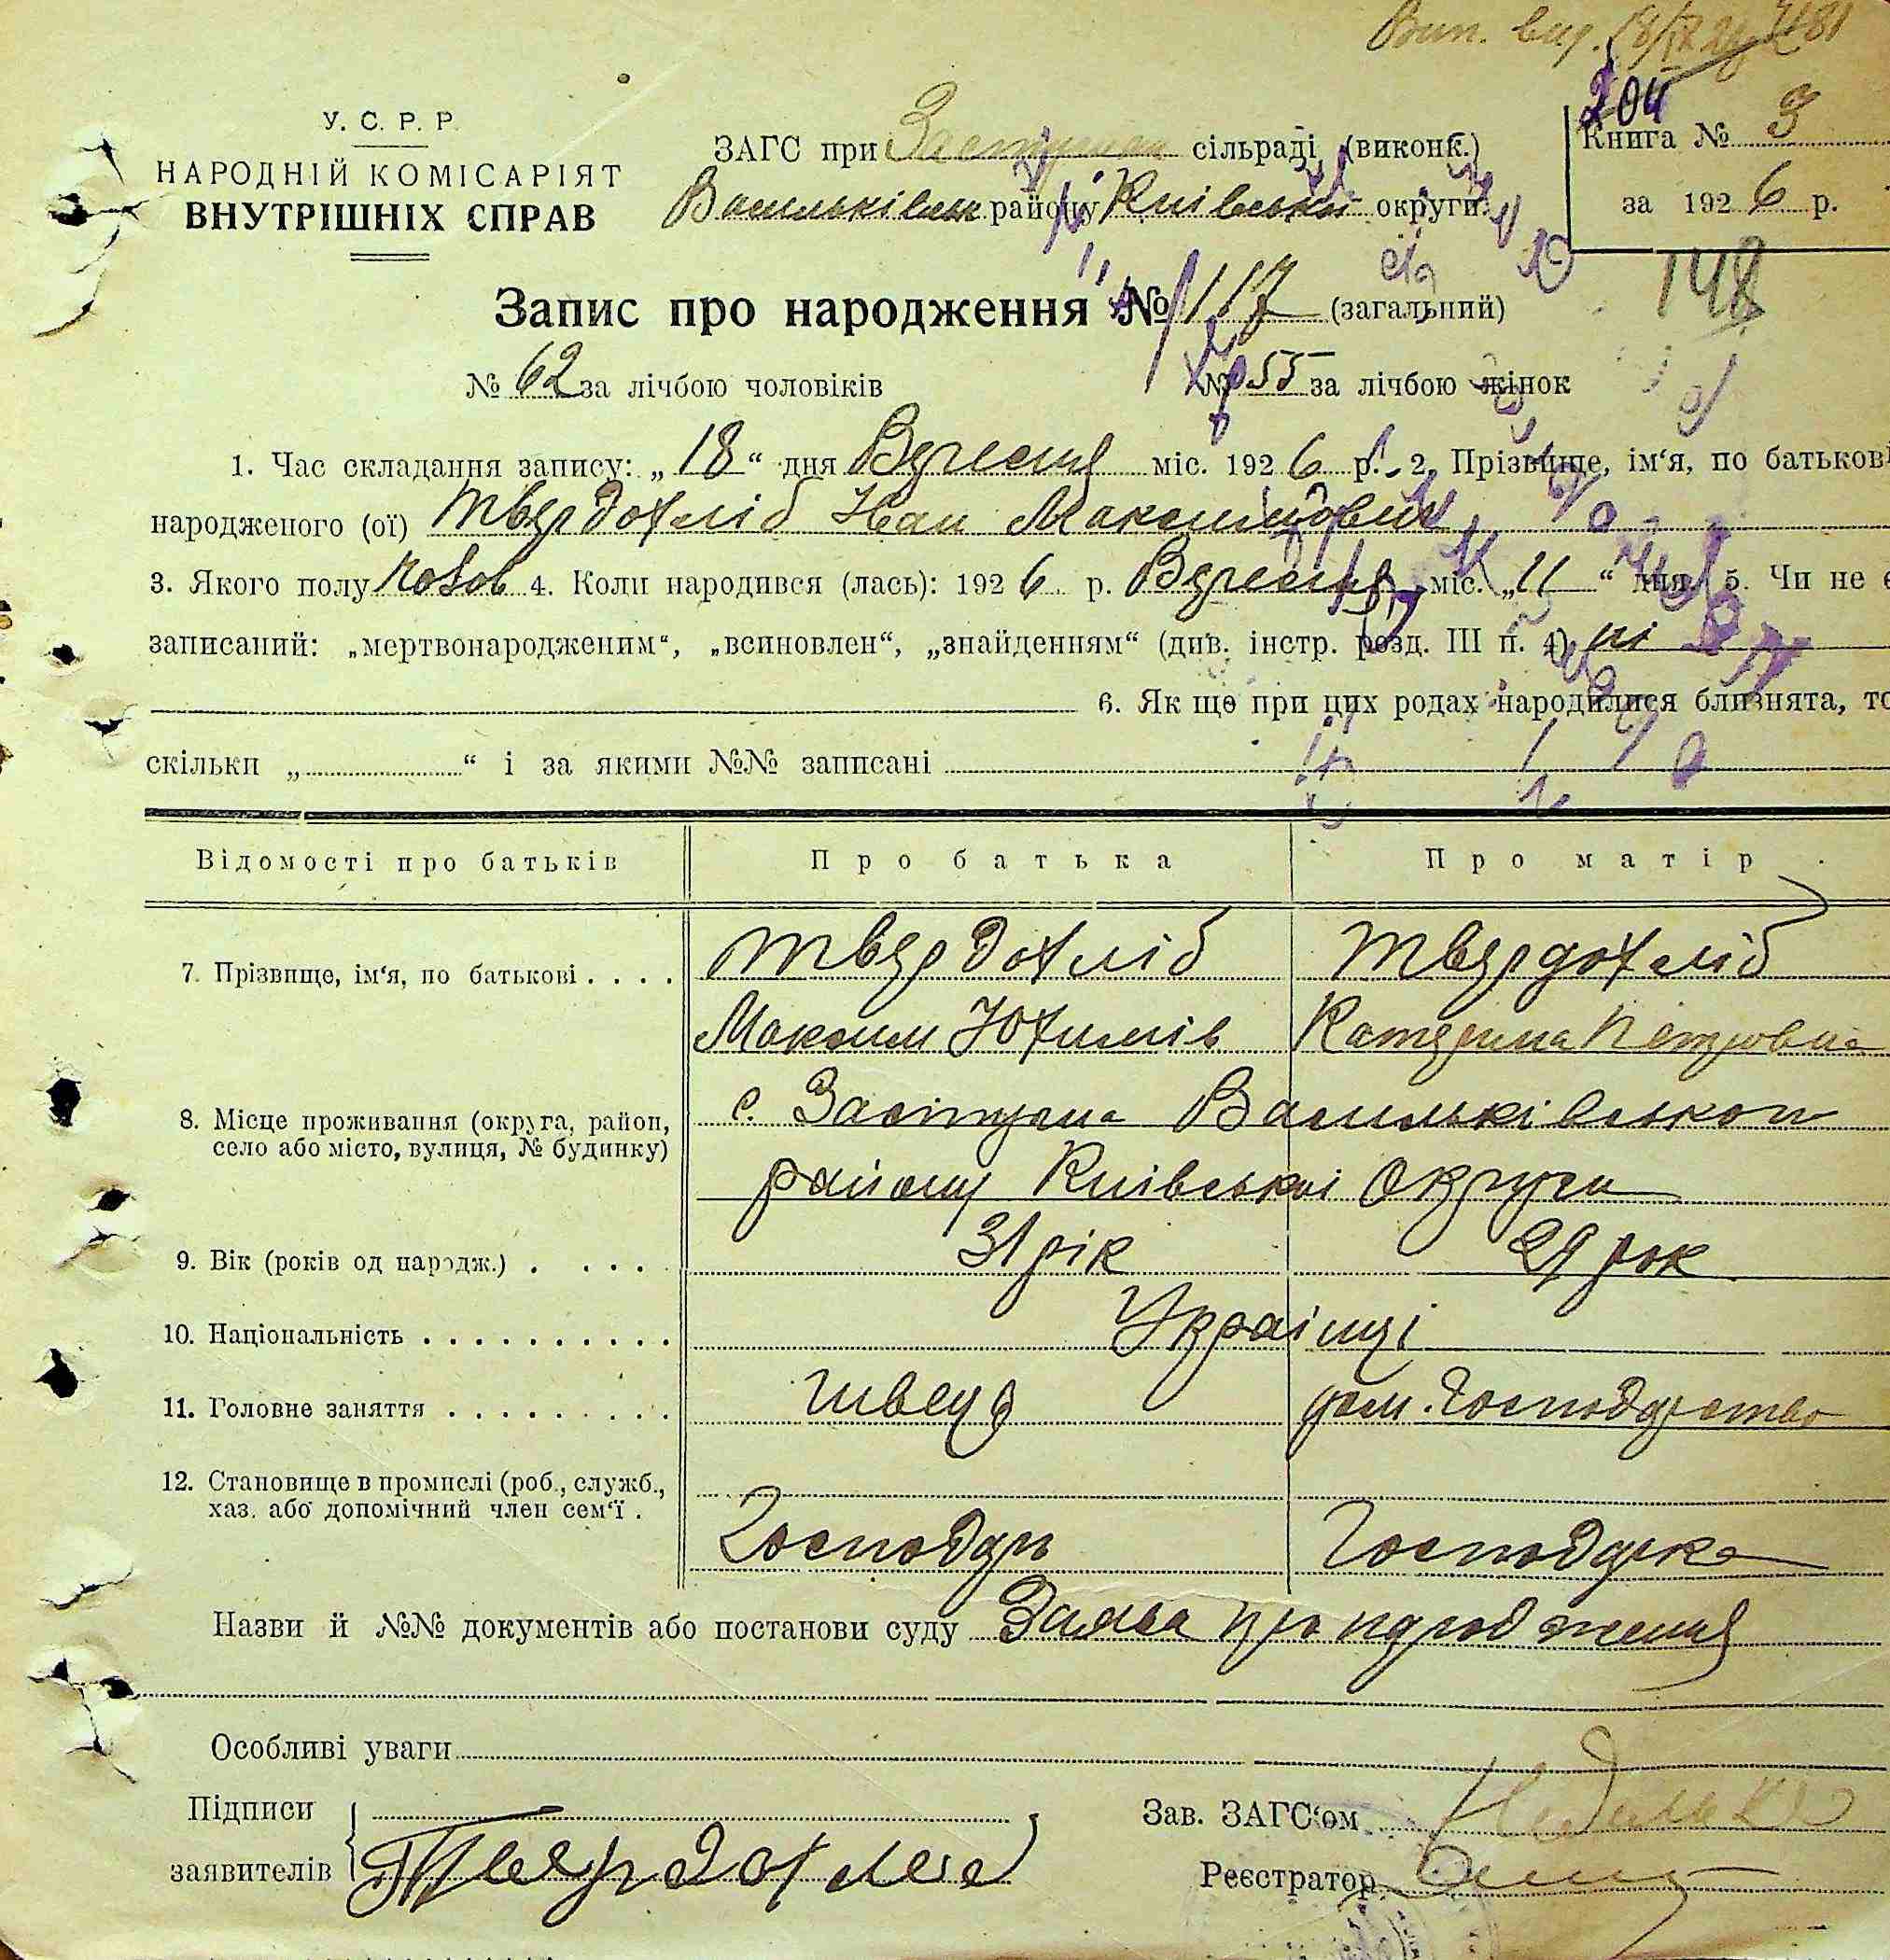 204
У. С. Р. Р.
НАРОДНІЙ КОМІСАРІЯТ
ВНУТРІШНІХ СПРАВ
ЗАГС при сільраді (виконк.)
Васильківськ району Київської округи
Книга № 3
за 1926 р.
148
Запис про народження № 117 (загальний)
№ 62 за лічбою чоловіків № 55 за лічбою жінок
1. Час складання запису: „18“ дня Вересня міс. 1926 р. 2. Прізвище, ім'я, по батькові
народженого (ої) Твердохліб Іван Максимович
3. Якого полу 4. Коли народився (лась): 1926 р. Вересня міс. „11“ дня 5. Чи не є
записаний: „мертвонародженим“, „всиновлен“, „знайденням“ (див. інстр. розд. III п. 4) ні
6. Як що при цих родах народилися близнята, то
скільки „ “ і за якими №№ записані
Відомості про батьків Про батька Про матір
7. Прізвище, ім'я, по батькові . . . . Твердохліб Твердохліб
Максим Юхимів Катерина Петровна
8. Місце проживання (округа, район, село або місто, вулиця, № будинку) с. Застугна Васильківськои
району Київськоі Округи
9. Вік (років од народж.) . . . . . 31 рік 29 рок
10. Національність . . . . . . . . . . Украінці
11. Головне заняття . . . . . . . . . швець дом. Господарство
12. Становище в промислі (роб., служб.,
хаз. або допомічний член сем'ї .
Господарь Господарка
Назви й №№ документів або постанови суду Заява про народження
Особливі уваги
Підписи
заявителів Твердохлеб
Зав. ЗАГС'ом
Реєстратор